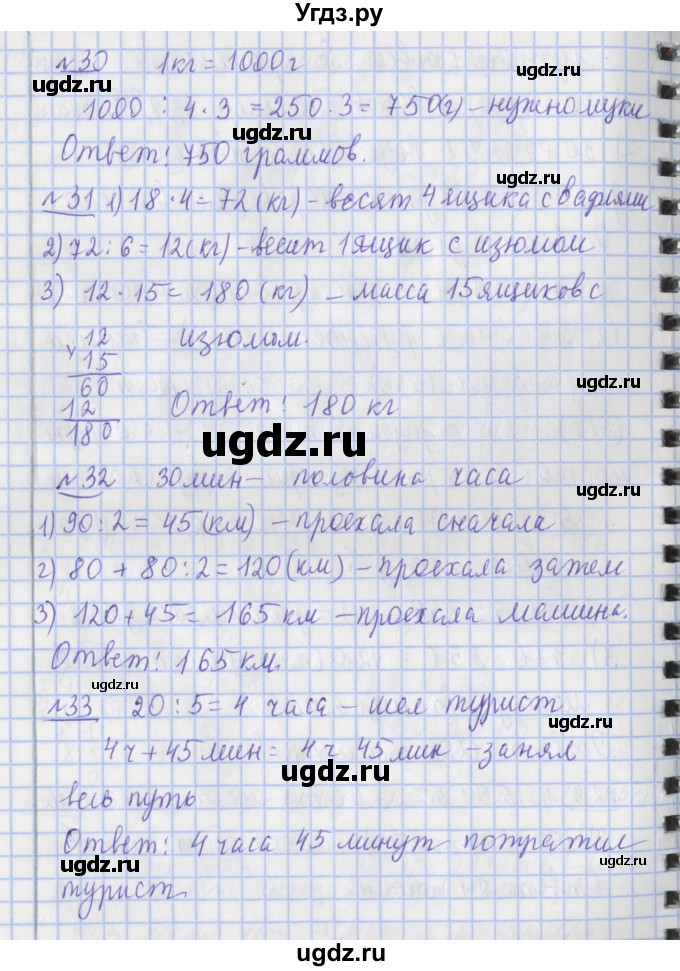 Угдз.ру
№30 1кг = 1000г
ugdz.ru ugdz.ru
1000 : 4 · 3 = 250 · 3 = 750(г) – нужно муки
ugdz.ru
Ответ: 750 граммов.
ugdz.ru
№31 1) 18 · 4 = 72 (кг) – весят 4 ящика с вафлями
2) 72 : 6 = 12 (кг) – весит 1 ящик с изюмом
3) 12 · 15 = 180 (кг) – масса 15 ящиков с
изюмом.
12
ugdz.ru
× 15
ugdz.ru
60
12
180
Ответ: 180 кг
ugdz.ru
№32 30 мин – половина часа
ugdz.ru
1) 90 : 2 = 45 (км) – проехала сначала
2) 80 + 80 : 2 = 120 (км) – проехала затем
ugdz.ru
3) 120 + 45 = 165 км – проехала машина.
Ответ: 165 км.
ugdz.ru
№33 20 : 5 = 4 часа – шел турист
ugdz.ru
4ч + 45 мин = 4 ч 45 мин – занял
ugdz.ru
весь путь
Ответ: 4 часа 45 минут потратил
ugdz.ru ugdz.ru
турист.
ugdz.ru